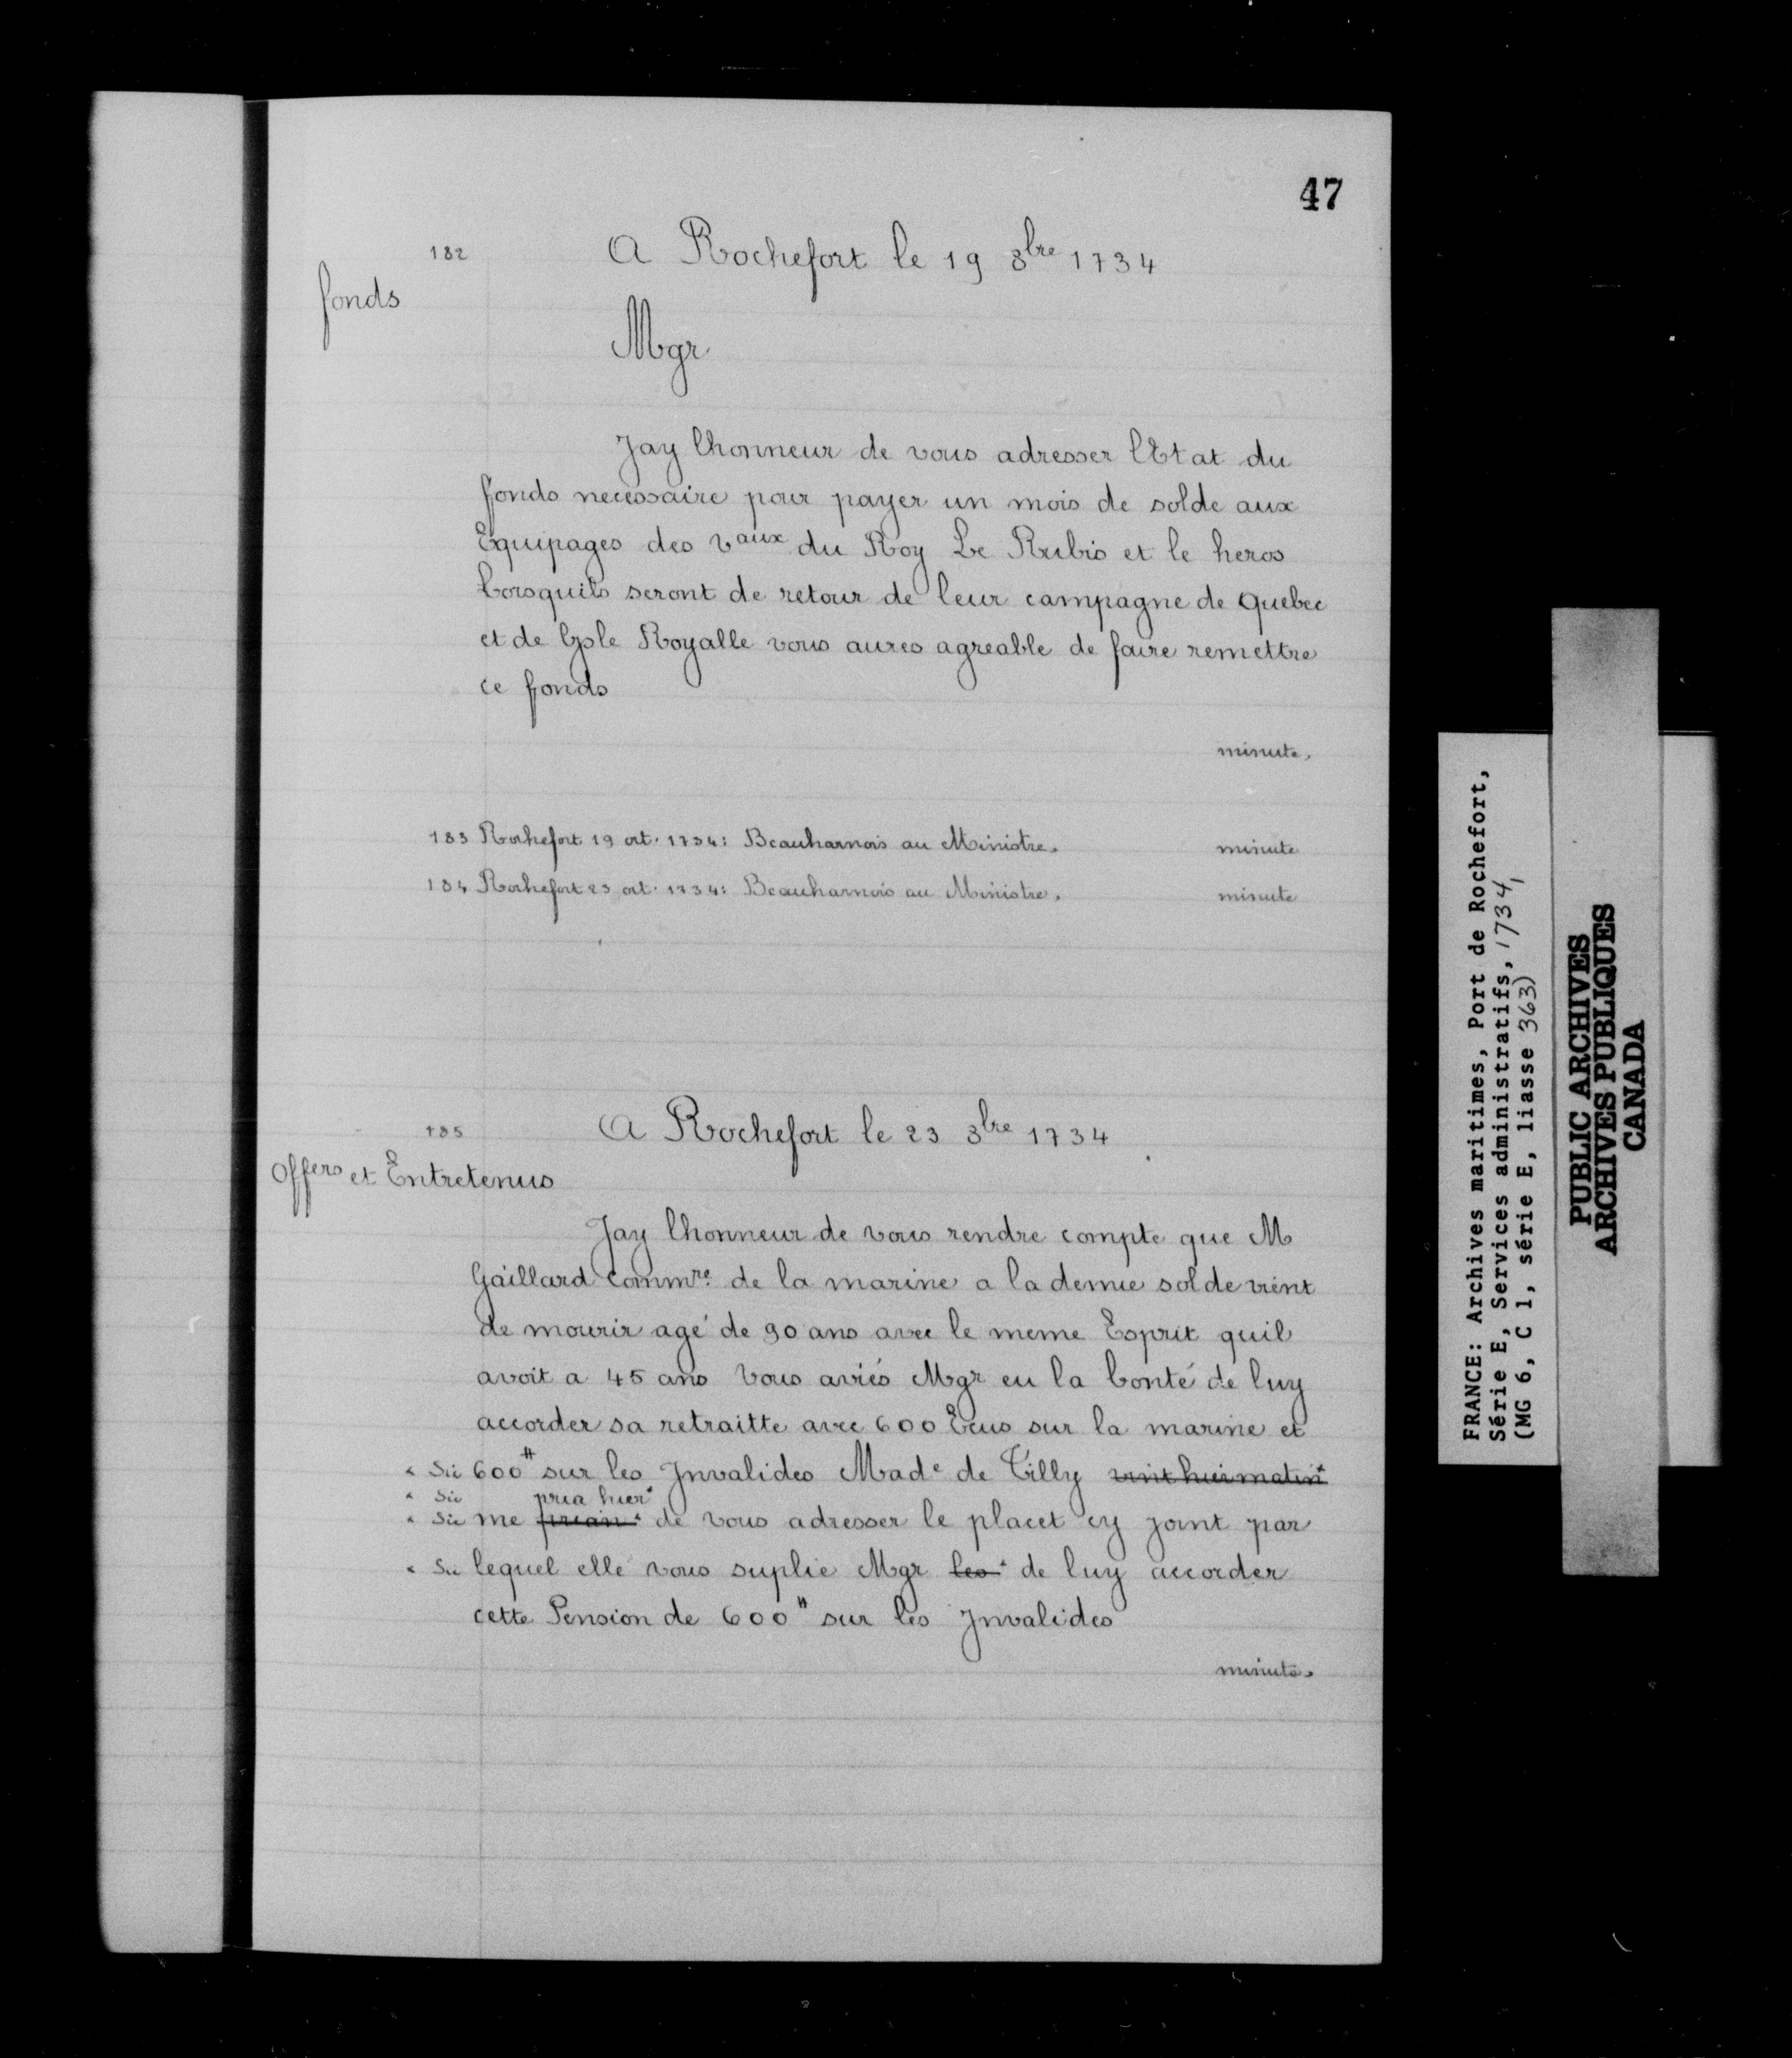 47
182 A Rochefort le 19 8bre 1734
fonds
Mgr
Jay lhonneur de vous adresser lEtat du
fonds necessaire pour payer un mois de solde aux
Equipages des vaux du Roy Le Rubis et le heros
lorsquils seront de retour de leur campagne de Quebec
et de lysle Royalle vous aures agreable de faire remettre
ce fonds
minute.
183 Rochefort 19 oct. 1734: Beauharnois au Ministre. minute
184 Rochefort 23 oct. 1734: Beauharnois au Ministre. minute
185 A Rochefort le 23 8bre 1734
Offers et Entretenus
Jay lhonneur de vous rendre compte que M
Gaillard Commre de la marine a la demie solde vient
de mourir agé de 90 ans avec le meme Esprit quil
avoit a 45 ans Vous aviés Mgr eu la bonté de luy
accorder sa retraitte avec 600 Ecus sur la marine et
* Sic 600# sur les Invalides Made de Tilly vint hier matin*
* Sic pria hier*
* Sic me prian* de vous adresser le placet cy joint par
* Sic lequel elle vous suplie Mgr les* de luy accorder
cette Pension de 600# sur les Invalides
minute.
FRANCE: Archives maritimes, Port de Rochefort,
Série E, Services administratifs, 1734,
(MG 6, C 1, série E, liasse 363)
PUBLIC ARCHIVES
ARCHIVES PUBLIQUES
CANADA